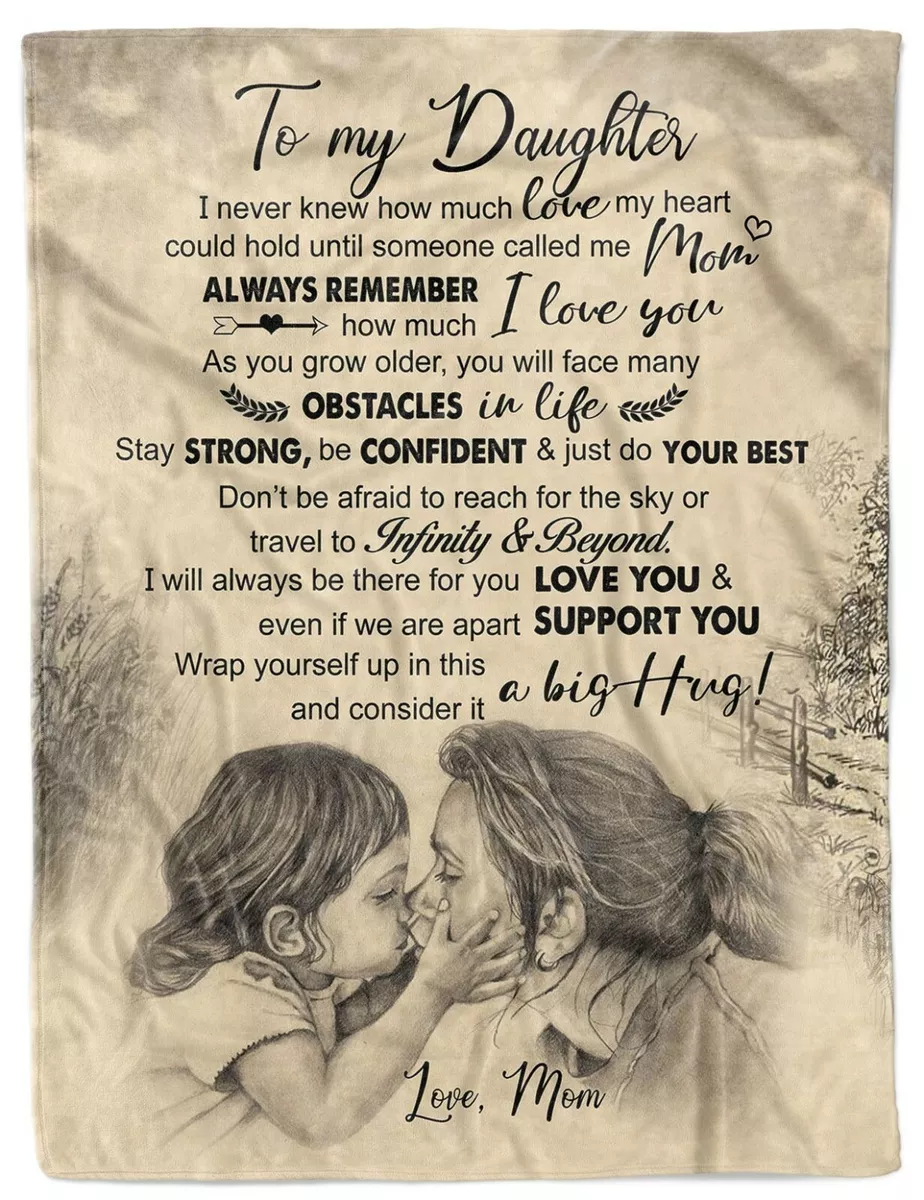 To my Daughter
I never knew how much love my heart
could hold until someone called me Mom
ALWAYS REMEMBER
how much I love you
As you grow older, you will face many
OBSTACLES in life
Stay STRONG, be CONFIDENT & just do YOUR BEST
Don't be afraid to reach for the sky or
travel to Infinity & Beyond.
I will always be there for you LOVE YOU &
even if we are apart SUPPORT YOU
Wrap yourself up in this
and consider it a big Hug!
Love, Mom